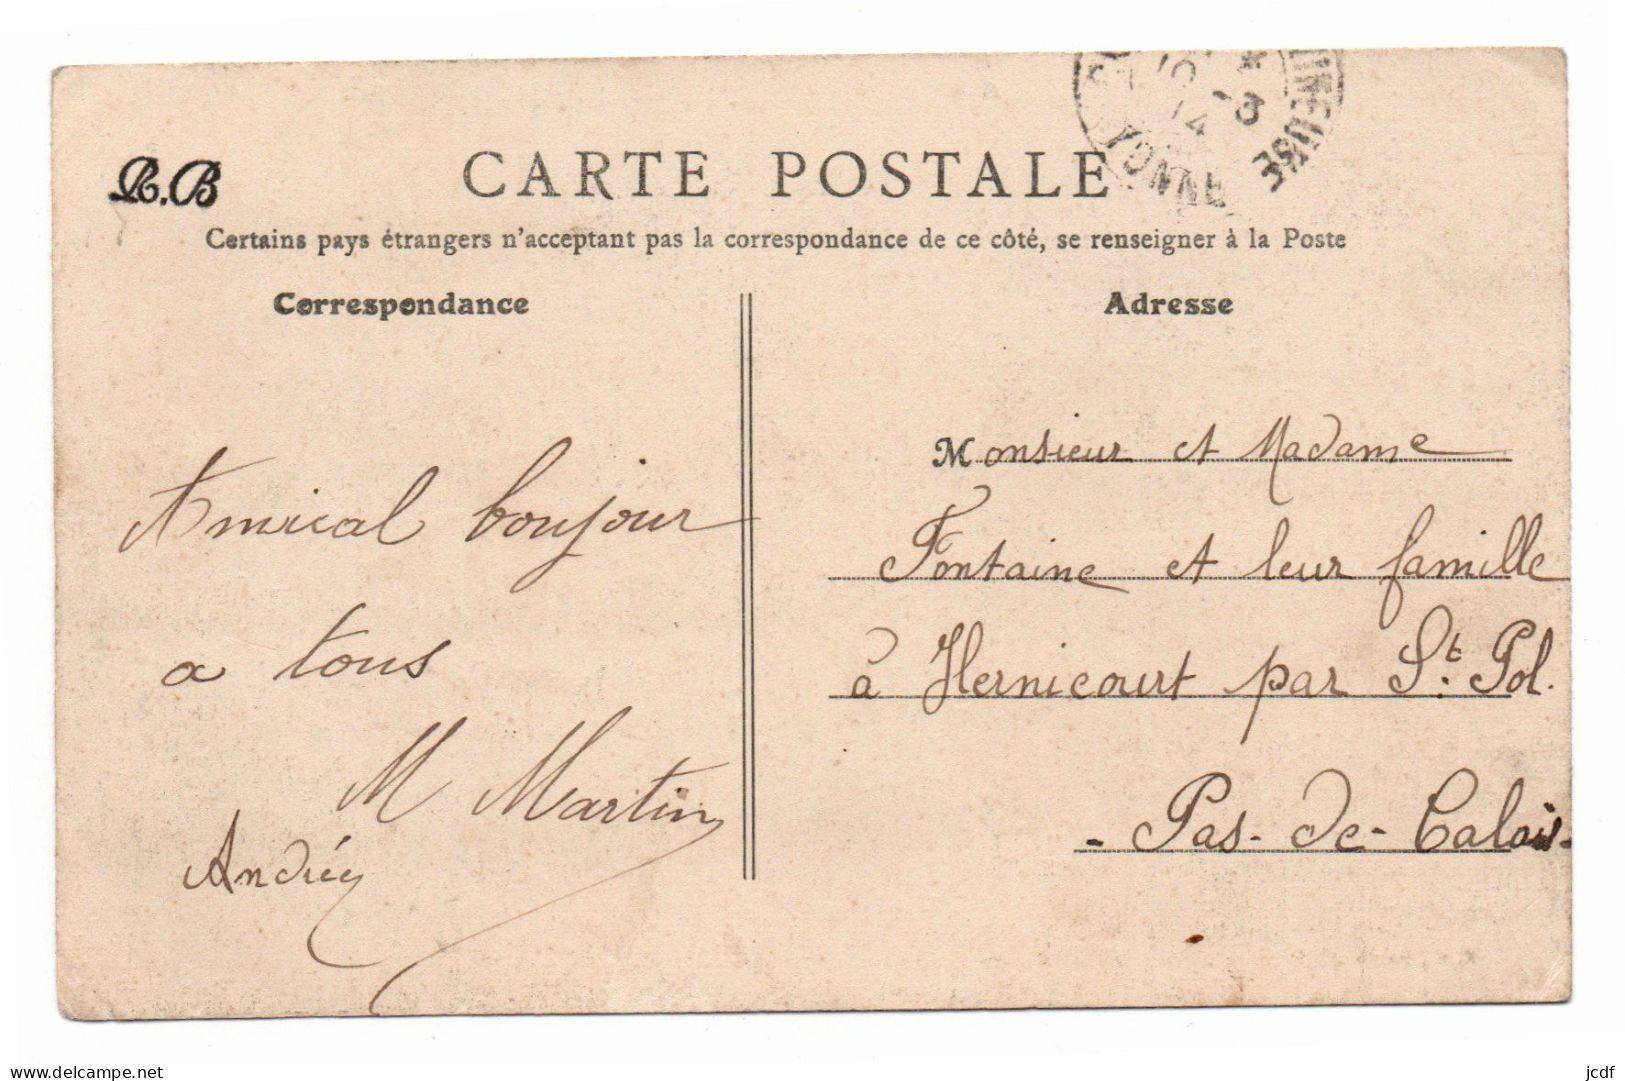 R.B
CARTE POSTALE
YONNE
14
Certains pays étrangers n'acceptant pas la correspondance de ce côté, se renseigner à la Poste
Correspondance
Adresse
Amical boujour
a tous
M Martin
Andréy
Monsieur et Madame
Fontaine et leur famille
à Hernicourt par St. Pol.
- Pas-de-Calais-
© delcampe.net
jcdf